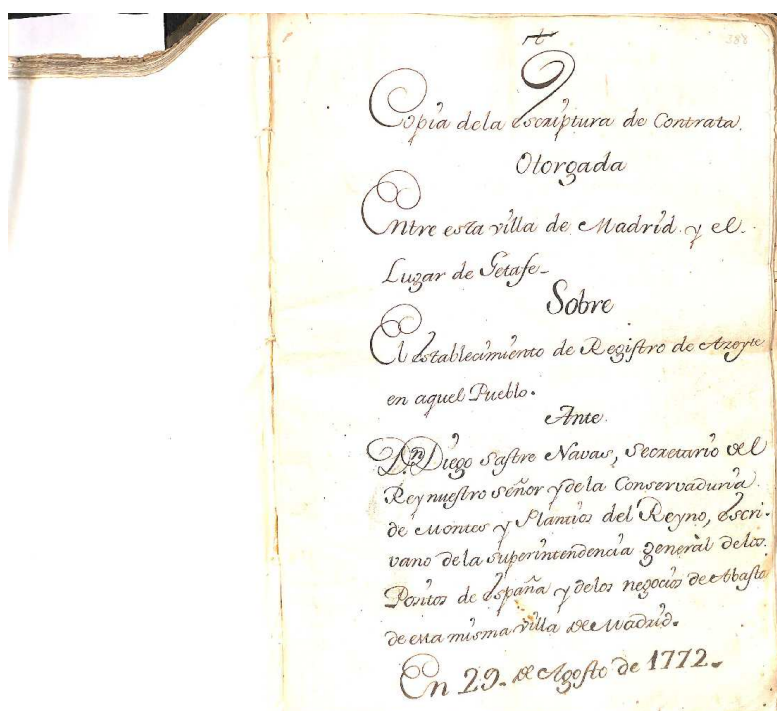 388
Copia dela escriptura de Contrata.
Otorgada
Entre esta villa de Madrid y el
Lugar de Getafe
Sobre
El establecimiento de Registro de Azeyte
en aquel Pueblo.
Ante
Dn Diego Sastre Navas, Secretario del
Rey nuestro señor y de la Conservaduria
de Montes y Plantios del Reyno, escri-
vano de la superintendencia general delos
Positos de españa y delos negocios de Abasto
de esta misma villa de Madrid.
En 29. de Agosto de 1772.